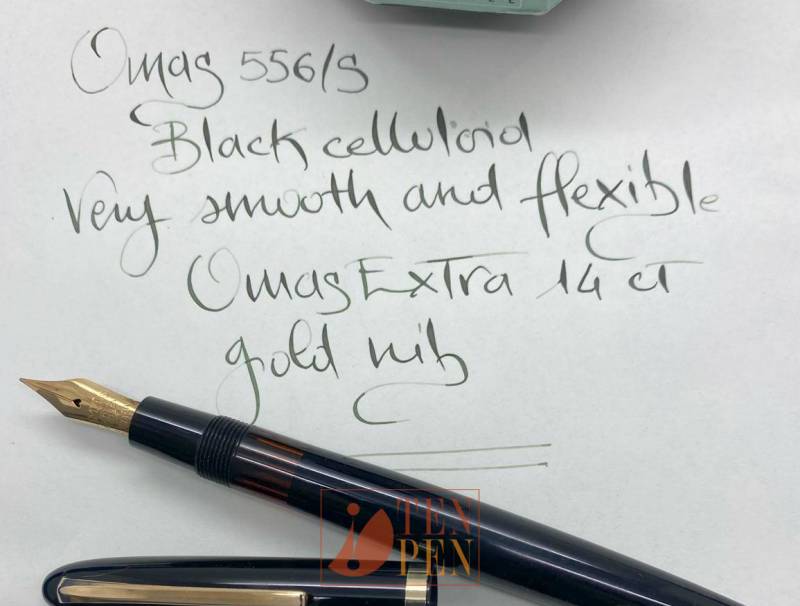 Omas 556/S
Black celluloid
Very smooth and flexible
Omas Extra 14 ct
gold nib
TEN
PEN